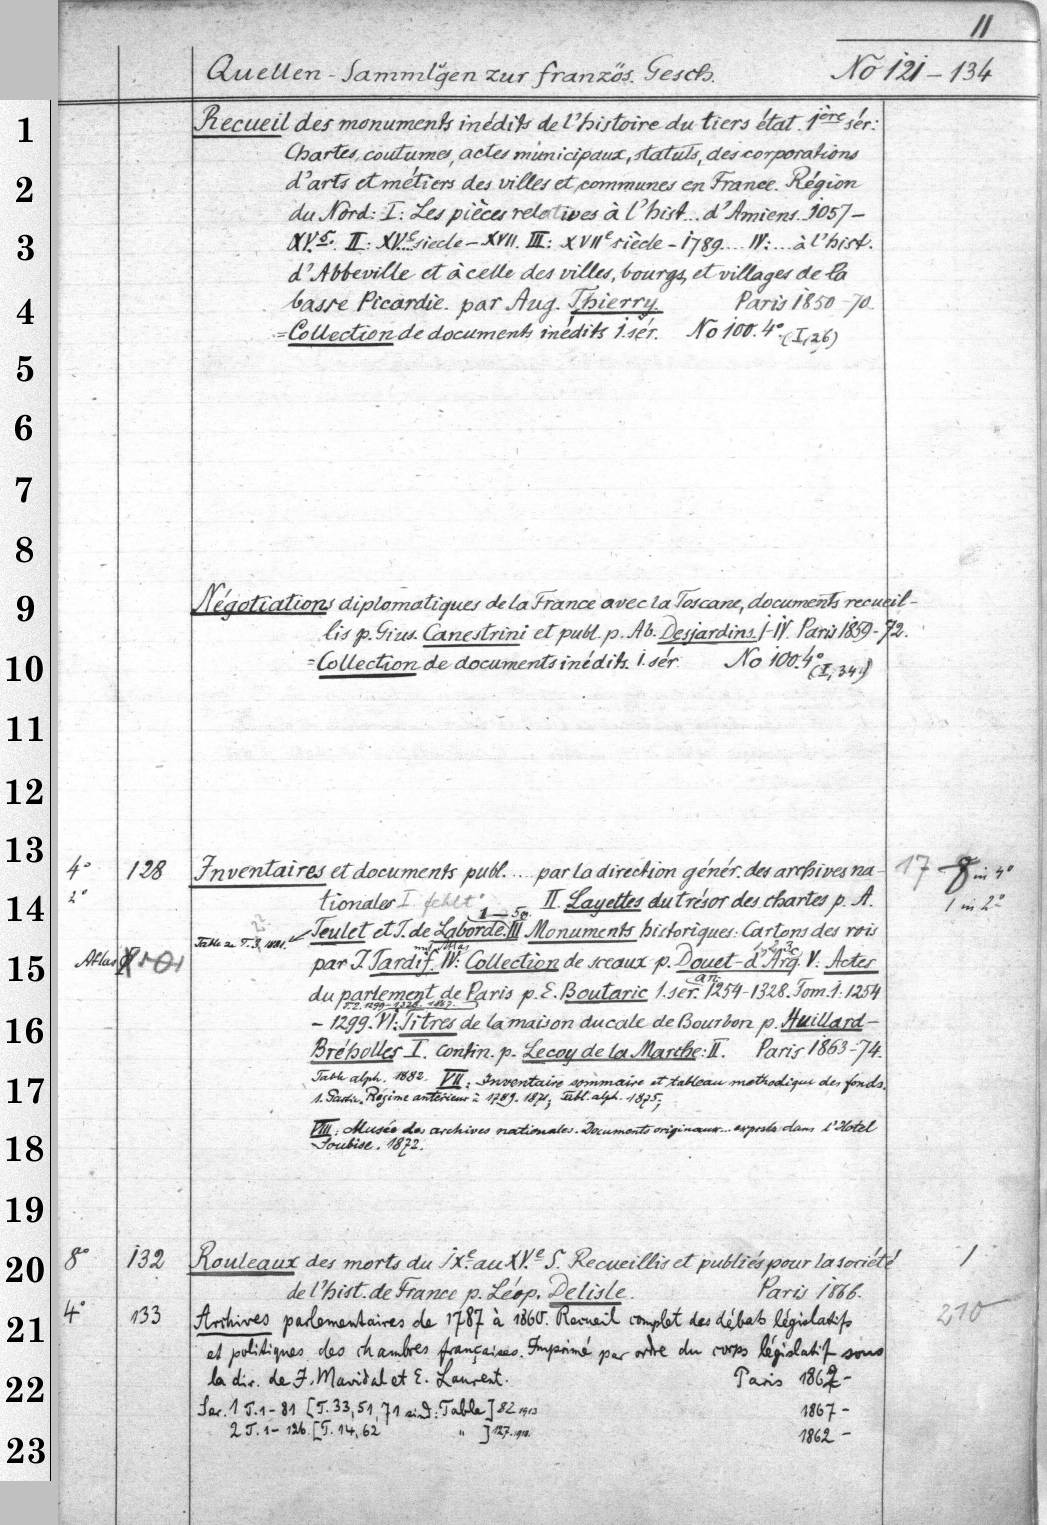 11
Quellen-Sammlgen zur französ. Gesch. No 121-134
1
Recueil des monuments inédits de l'histoire du tiers état. 1ère sér:
Chartes, coutumes, actes municipaux, statuts, des corporations
2
d'arts et métiers des villes et communes en France. Région
du Nord: I: Les pièces relatives à l'hist... d'Amiens. 1057-
3
XV.e II: XV.e siecle - XVII. III: XVIIe siècle - 1789.... IV: ... à l'hist.
d'Abbeville et à celle des villes, bourgs, et villages de la
4
basse Picardie. par Aug. Thierry. Paris 1850-70.
= Collection de documents inédits 1. sér. No 100. 4° (I,26)
5
6
7
8
9
Négotiations diplomatiques de la France avec la Toscane, documents recueil-
lis p. Gius. Canestrini et publ. p. Ab. Desjardins. I-IV. Paris 1859-72.
10
= Collection de documents inédits. 1. sér. No 100. 4° (I,34.)
11
12
13
4° 128 Inventaires et documents publ.... par la direction génér. des archives na- 17 8 in 4°
2° 1 in 2°
14
tionales I fehlt. II. Layettes du trésor des chartes p. A.
1-5
Teulet et J. de Laborde. III Monuments historiques: Cartons des rois
15
Atlas
par J. Tardif. IV: Collection de sceaux p. Douet-d'Arq. V: Actes
mit Atlas 1. 2. 3
du parlement de Paris p. E. Boutaric 1. sér. 1254-1328. Tom. 1. 1254
16
T. 2. 1299-1328. 1867.
- 1299. VI: Titres de la maison ducale de Bourbon p. Huillard-
Bréholles I. contin. p. Lecoy de la Marche: II. Paris 1863-74.
17
Table alph. 1882. VII: Inventaire sommaire et tableau methodique des fonds.
1. Partie. Régime antérieur à 1789. 1871; Tabl. alph. 1875;
18
VIII: Musée des archives nationales. Documents originaux... exposés dans l'Hotel
Soubise. 1872.
19
20
8° 132 Rouleaux des morts du IX.e au XV.e S. Recueillis et publiés pour la société 1
de l'hist. de France p. Léop. Delisle. Paris 1866.
21
4° 133 Archives parlementaires de 1787 à 1860. Recueil complet des débats législatifs 210
et politiques des chambres françaises. Imprimé par ordre du corps législatif sous
22
la dir. de J. Mavidal et E. Laurent. Paris 1862-
Ser. 1 T. 1-81 [T. 33, 51, 71 sind: Table] 82 1913 1867-
23
2 T. 1-126. [T. 14, 62 " ] 127. 1862-